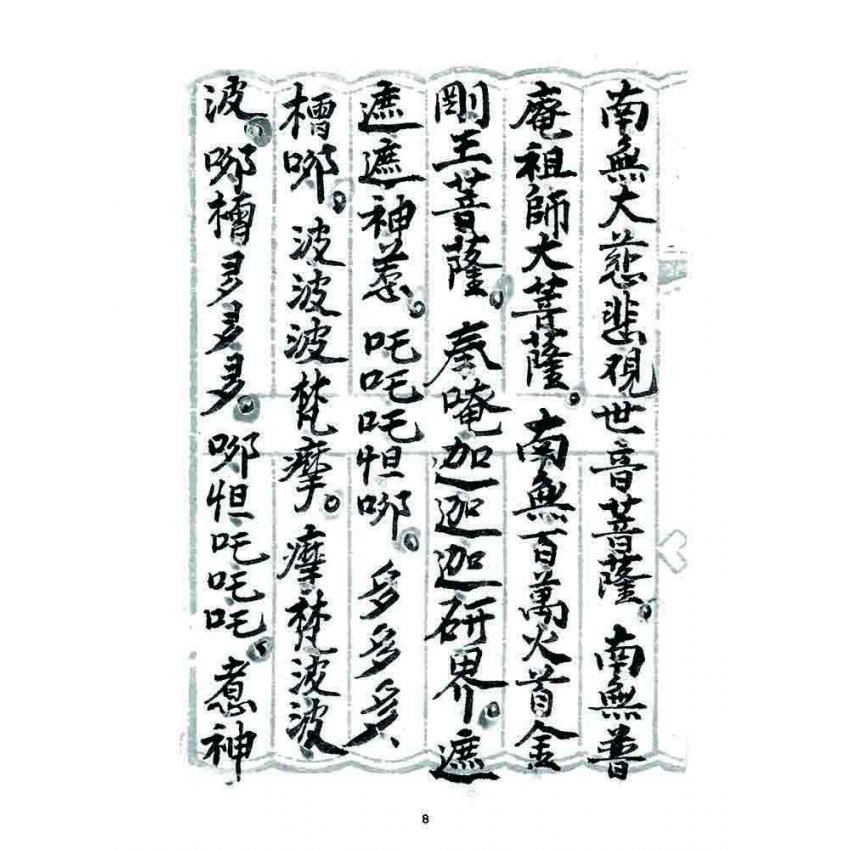 南無大慈悲覌世音菩薩。南無普
庵祖師大菩薩。南無百萬火首金
剛王菩薩。奏唵迦迦迦研界。遮
遮遮神惹。吒吒吒怛哪。多多多
檀哪。波波波梵摩。摩梵波波
波。哪檀多多多。哪怛吒吒吒。惹神
8